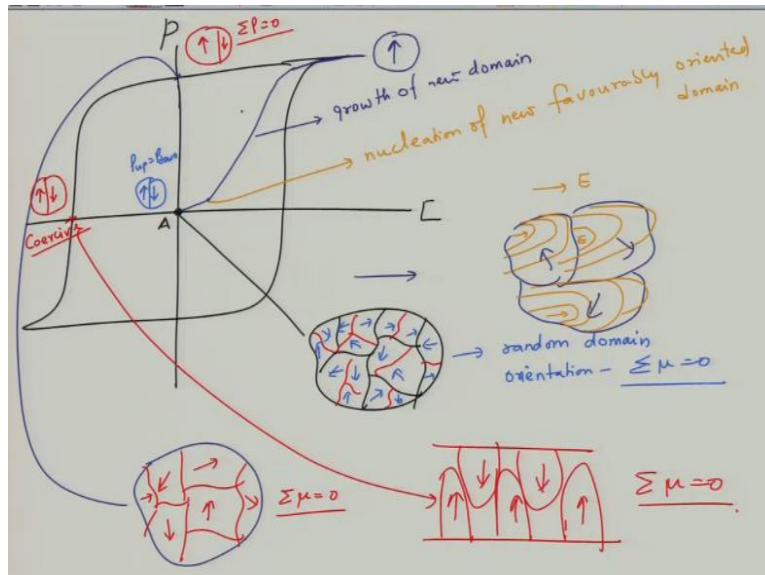 P
ΣP=0
growth of new domain
nucleation of new favourably oriented
domain
Pup=Pdown
A
E
Coercive
→ E
E
random domain
orientation - Σμ=0
Σμ=0
Σμ=0